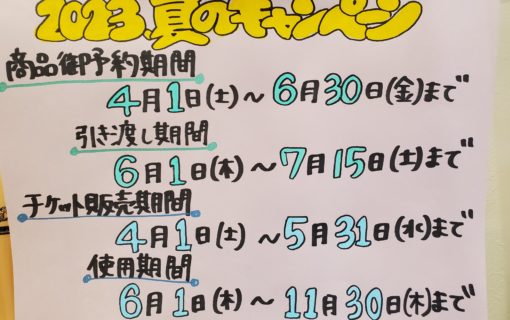 2023 夏のキャンペーン
商品御予約期間
4月1日(土)～6月30日(金)まで
引き渡し期間
6月1日(木)～7月15日(土)まで
チケット販売期間
4月1日(土)～5月31日(水)まで
使用期間
6月1日(木)～11月30日(木)まで